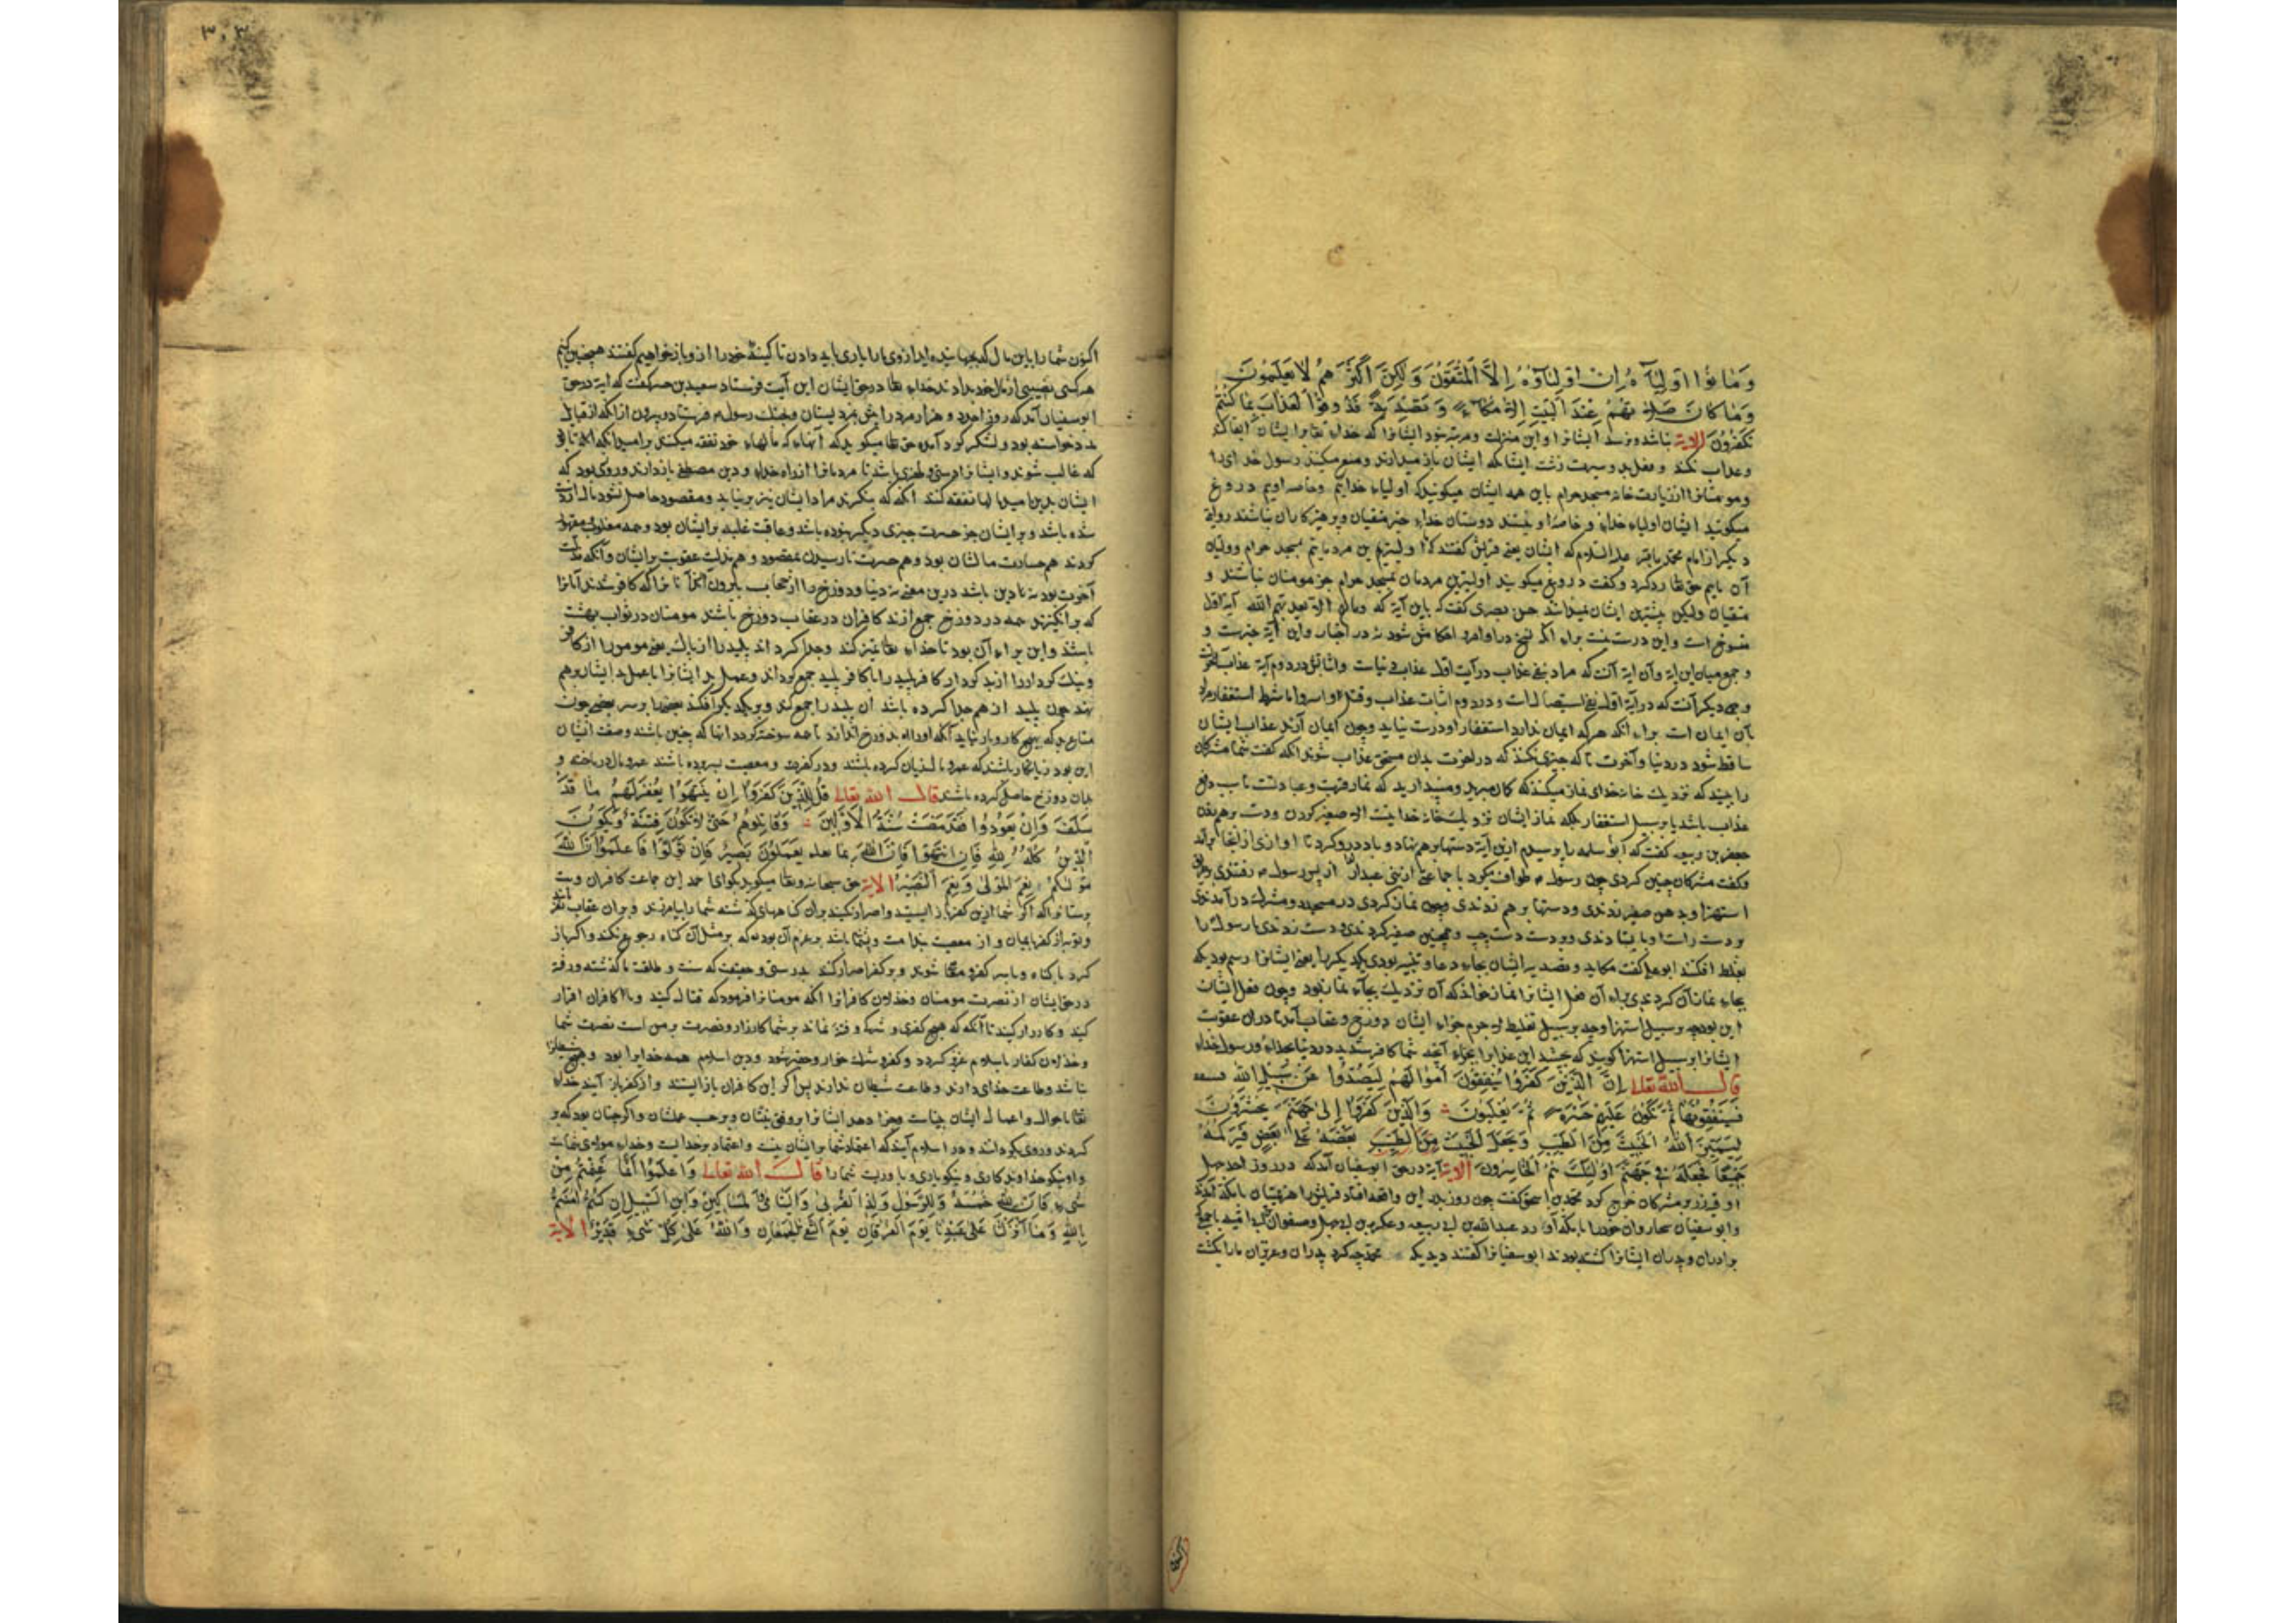 وَمَا كَانُوا اَوْلِيَآءَهُ اِنْ اَوْلِيَآؤُهُ اِلَّا الْمُتَّقُوْنَ وَلٰكِنَّ اَكْثَرَهُمْ لَا يَعْلَمُوْنَ
وَمَا كَانَ صَلٰوتُهُمْ عِنْدَ الْبَيْتِ اِلَّا مُكَآءً وَتَصْدِيَةً فَذُوقُوْا الْعَذَابَ بِمَا كُنْتُمْ
تَكْفُرُوْنَ الایة نباشد ونرسد ایشانرا واین منزلت ومرتبه خود ایشانرا که خدای تعالی ایشان
وعذاب نکند و فعل بد و سیرت زشت ایشان که ایشان باز میدارند ومنع میکنند رسول خدای را
ومومنانرا از زیارت خانه مسجد حرام با این همه ایشان میگویند که اولیاء خدایم وخاصه اویم دروغ
میگویند ایشان اولیاء خدای و خاصه او نیستند دوستان خدای جز متقیان وپرهیزکاران نباشند روایة
دیگر از امام محمد باقر علیه السلام که ایشان یعنی قریش گفتند که ما اولیترین مردمانیم بمسجد حرام و ولیان
آن مایم حق تعالی رد کرد و گفت دروغ میگویند اولیترین مردمان بمسجد حرام جز مومنان نباشند و
متقیان ولیکن بیشترین ایشان نمیدانند حسن بصری گفت که باین آیة که ومالهم الا یعذبهم الله آیة اول
منسوخ است واین درست نیست برای انکه نسخ در اوامر و احکام شود نه در اخبار واین آیة خبرست و
و جمع میان این ایة وآن ایة آنست که مراد بنفی عذاب در آیت اول عذاب دنیاست واثباتش در دوم آیة عذاب آخرت
و وجهی دیگر آنست که در آیة اول نفی استیصال است و در دوم اثبات عذاب وقتل واسر واما شرط استغفار مراد
بآن ایمان است برای انکه هرکه ایمان ندارد استغفار او درست نیاید وچون ایمان آرند عذاب ایشان
ساقط شود در دنیا وآخرت تا که چیزی نکنند که در آخرت بدان مستحق عذاب شوند انکه گفت شما مشرکان
را بینید که نزدیک خانه خدای نماز میکنند که گمان میبرید ومیپندارید که نماز قربت وعبادتست تا سبب دفع
عذاب باشد یا بر سبیل استغفار بلکه نماز ایشان نزدیک خانه خدا نیست الا صفیر کردن ودست برهم زدن
جعفر بن ربیعه گفت که ابو سلمه را پرسیدم ازین آیة دستها برهم نهاد و باد درو کرد تا اوازی از انجا برآمد
وگفت مشرکان چنین کردی چون رسول م طواف میکرد با جماعتی از بنی عبدالدار از پس رسول م رفتندی وبطریق
استهزا وبدهن صفیر زدندی ودستها برهم زدندی وچون نماز کردی در مسجد دو مشرک در آمدندی
بر دست راست او بایستادندی و دو بر دست چپ و همچنین صفیر کردندی و دست زدندی تا رسول را
بغلط افکنند ابو علی گفت مکاء و تصدیه ایشان بجای دعا و تسبیح بودی بیکدیگر یعنی ایشانرا رسم بود که
بجای نماز آن کردندی برای آن فعل ایشانرا نماز خواند که آن نزدیک بجای نماز بود وچون فعل ایشان
این بود چه بر سبیل استهزا وچه بر سبیل تغلیط لا جرم جزای ایشان دوزخ وعقاب آمد تا دران عقوبت
ایشانرا بر سبیل استهزا گویند که بچشید این عذاب را بجزای آنچه شما کافر شدید در دنیا بخدای ورسول خدای
قال الله تعالی اِنَّ الَّذِيْنَ كَفَرُوْا يُنْفِقُوْنَ اَمْوَالَهُمْ لِيَصُدُّوْا عَنْ سَبِيْلِ اللهِ
فَسَيُنْفِقُوْنَهَا ثُمَّ تَكُوْنُ عَلَيْهِمْ حَسْرَةً ثُمَّ يُغْلَبُوْنَ وَالَّذِيْنَ كَفَرُوْا اِلٰى جَهَنَّمَ يُحْشَرُوْنَ
لِيَمِيْزَ اللهُ الْخَبِيْثَ مِنَ الطَّيِّبِ وَيَجْعَلَ الْخَبِيْثَ مِنَ الطَّيِّبِ بَعْضَهُ عَلٰى بَعْضٍ فَيَرْكُمَهُ
جَمِيْعًا فَيَجْعَلَهُ فِيْ جَهَنَّمَ اُولٰئِكَ هُمُ الْخَاسِرُوْنَ الایة آیة در حق ابو سفیان آمد که در روز احد چهل
اوقیه زر بر مشرکان خرج کرد محمد بن اسحق گفت چون روز بدر این واقعه افتاد قریش را هزیمتیان با مکه آمدند
وابو سفیان با کاروان خود را با مکه آورد عبدالله بن ابی ربیعه وعکرمه بن ابی جهل وصفوان بن امیه با جمعی که
برادران و پدران ایشانرا کشته بودند ابو سفیانرا گفتند دیدی که محمد چه کرد پدران وعزیزان مارا بکشت
اکنون
۳۰۴
اکنون شما را باین مال که بجهانیده اید ازوی مارا یاری باید دادن تا کینهٔ خود را ازو باز خواهیم گفتند همچنین کنیم
هرکسی نصیبی از مال خود بدادند خدای تعالی در حق ایشان این آیت فرستاد سعید بن جبیر گفت که ایة در حق
ابو سفیان آمد که روز احد دو هزار مرد را بمزد بستان وبجنگ رسول م فرستاد و بیرون از آنکه از قبایل
مدد خواسته بود ولشکر گرد آمده حق تعالی میگوید که آنها که مالهای خود نفقه میکنند بر امید آنکه
که غالب شوند وایشانرا دستی وظفری باشد تا مردمانرا از راه خدای ودین مصطفی باز دارند وروی بود که
ایشان بدین امید مالها نفقه کنند آنکه که بنگرند مراد ایشان نیز بر نیاید ومقصود حاصل نشود مال از دست
شده باشد و بر ایشان جز حسرت چیزی دیگر نبوده باشد وعاقبت غلبه بر ایشان بود وهمه مغلوب ومقهور
گردند هم خسارت مالشان بود وهم حسرت نارسیدن بمقصود وهم مذلت عقوبت بر ایشان وآنگه مذلت
که برانگیزند همه در دوزخ جمع آرند کافران در عقاب دوزخ باشند مومنان در ثواب بهشت
باشند واین برای آن بود تا خدای تعالی تمییز کند وجدا گرداند پلید را از پاک یعنی مومن را از کافر
ونیک کردار را از بد کردار کافر پلید را با کافر پلید جمع گرداند وعمل بد ایشانرا با عمل بد ایشان برهم
نهد چون پلید از هم جدا کرده باشد آن پلید را جمع کند و بر یکدیگر افکند بعضی را بر سر بعضی چون
متاع بد که بهیچ کار وبار نیاید آنگه اورا بدوزخ اندازند تا همه سوخته گردد آنها که چنین باشند وصفت ایشان
این بود زیانکار باشند که عمر و مال زیان کرده باشند ودر کفر ومعصیت بسر برده باشند عمر ومال در باخته و
بدان دوزخ حاصل کرده باشند قال الله تعالی قُلْ لِلَّذِيْنَ كَفَرُوْا اِنْ يَنْتَهُوْا يُغْفَرْ لَهُمْ مَا قَدْ
سَلَفَ وَاِنْ يَعُوْدُوْا فَقَدْ مَضَتْ سُنَّةُ الْاَوَّلِيْنَ وَقَاتِلُوْهُمْ حَتّٰى لَا تَكُوْنَ فِتْنَةٌ وَيَكُوْنَ
الدِّيْنُ كُلُّهُ لِلهِ فَاِنِ انْتَهَوْا فَاِنَّ اللهَ بِمَا يَعْمَلُوْنَ بَصِيْرٌ فَاِنْ تَوَلَّوْا فَاعْلَمُوْا اَنَّ اللهَ
مَوْلٰىكُمْ نِعْمَ الْمَوْلٰى وَنِعْمَ النَّصِيْرُ الایة حق سبحانه وتعالی میگوید بگو ای محمد این جماعت کافران وبت
پرستانرا که اگر شما ازین کفر باز ایستید واصرار نکنید بران گناههای گذشته شما را بیامرزند وبران عقاب نکنند
وتوبه از کفر بایمان و از معصیت بندامت وپشیمانی باشد وعزم آن بود که بر مثل آن گناه رجوع نکند واگر باز
گرد با گناه وبا سر کفر ومعاصی شوند وبر کفر اصرار کنند بدرستی وحقیقت که سنت وطاقت ما گذشته ورفته
در حق ایشان از نصرت مومنان وخذلان کافرانرا آنگه مومنانرا فرمود که قتال کنید و با کافران افزار
کنید وکارزار کنید تا آنگه که هیچ کفری و شرک وفتنه نماند بر شما کارزار ونصرت بر من است نصرت شما
وخذلان کفار تا اسلام عزیز گردد وکفر وشرک خوار وحقیر شود ودین اسلام همه خدایرا بود وهیچ
نباشد وطاعت خدای دارند وطاعت شیطان ندارند پس اگر این کافران باز ایستند واز کفر باز آیند خدای
تعالی باحوال واعمال ایشان بیناست وجزا دهد ایشانرا بر وفق نیتشان وبر حسب عملشان واگر چنان بود که بر
گردند وروی بگردانند ودر اسلام نیایند که اعتماد شما بر ایشان نیست واعتماد بر خدایست وخدای مولای شماست
واو نیکو خداوندگاری ونیکو یاری ویاوریست شما را قال الله تعالی وَاعْلَمُوْا اَنَّمَا غَنِمْتُمْ مِنْ
شَيْءٍ فَاَنَّ لِلهِ خُمُسَهُ وَلِلرَّسُوْلِ وَلِذِي الْقُرْبٰى وَالْيَتَامٰى وَالْمَسَاكِيْنِ وَابْنِ السَّبِيْلِ اِنْ كُنْتُمْ اٰمَنْتُمْ
بِاللهِ وَمَا اَنْزَلْنَا عَلٰى عَبْدِنَا يَوْمَ الْفُرْقَانِ يَوْمَ الْتَقَى الْجَمْعَانِ وَاللهُ عَلٰى كُلِّ شَيْءٍ قَدِيْرٌ الایة